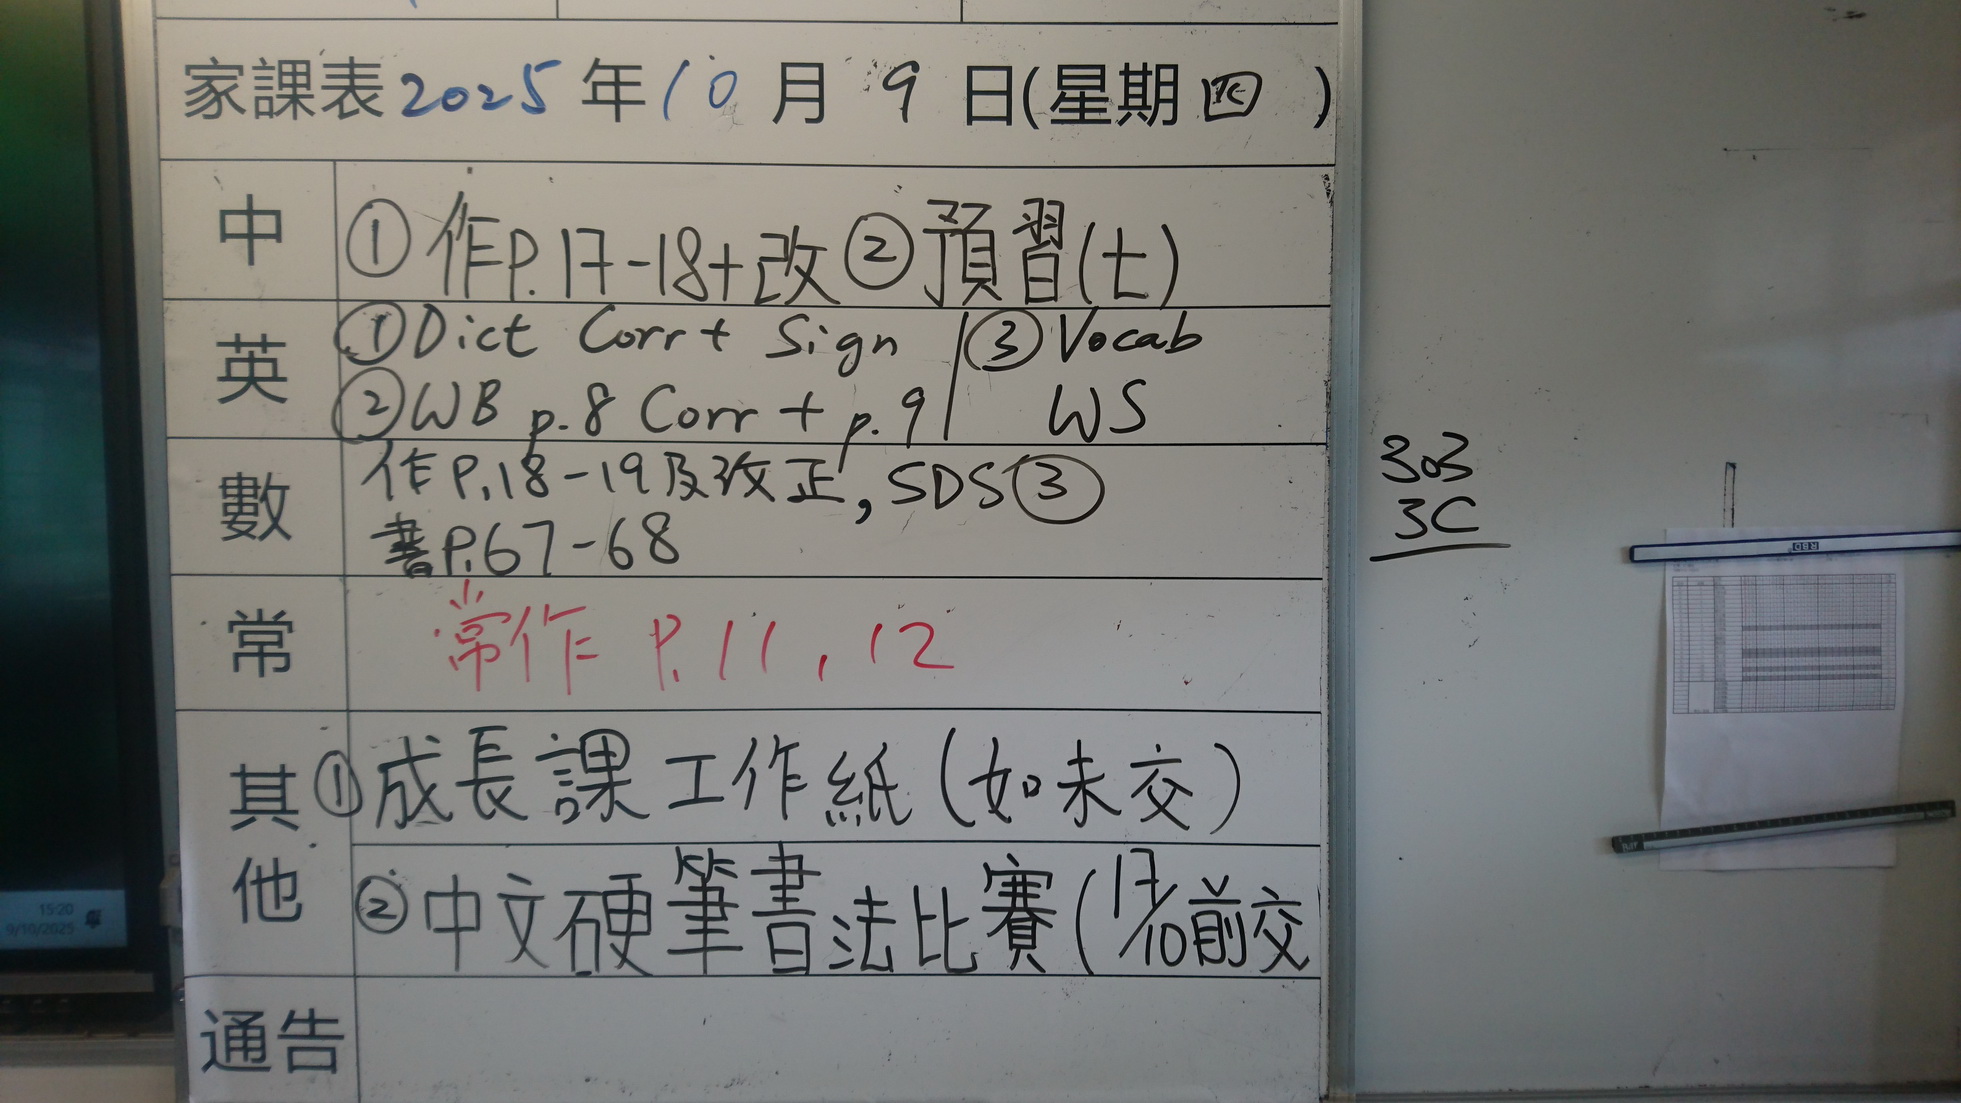 家課表2025年10月9日(星期四)
中
①作P.17-18+改②預習(七)
英
①Dict Corr + Sign
②WB p.8 Corr + p.9
③Vocab
WS
數
作P.18-19及改正,SDS③
書P.67-68
常
常作 P.11,12
其他
①成長課工作紙(如未交)
②中文硬筆書法比賽(17/10前交
通告
303
3C
15:20
9/10/2025